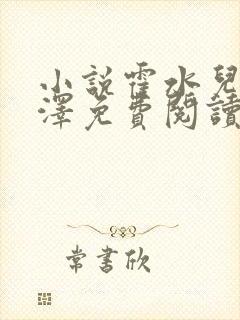 小說霍水兒
澤免費閱讀
常書欣